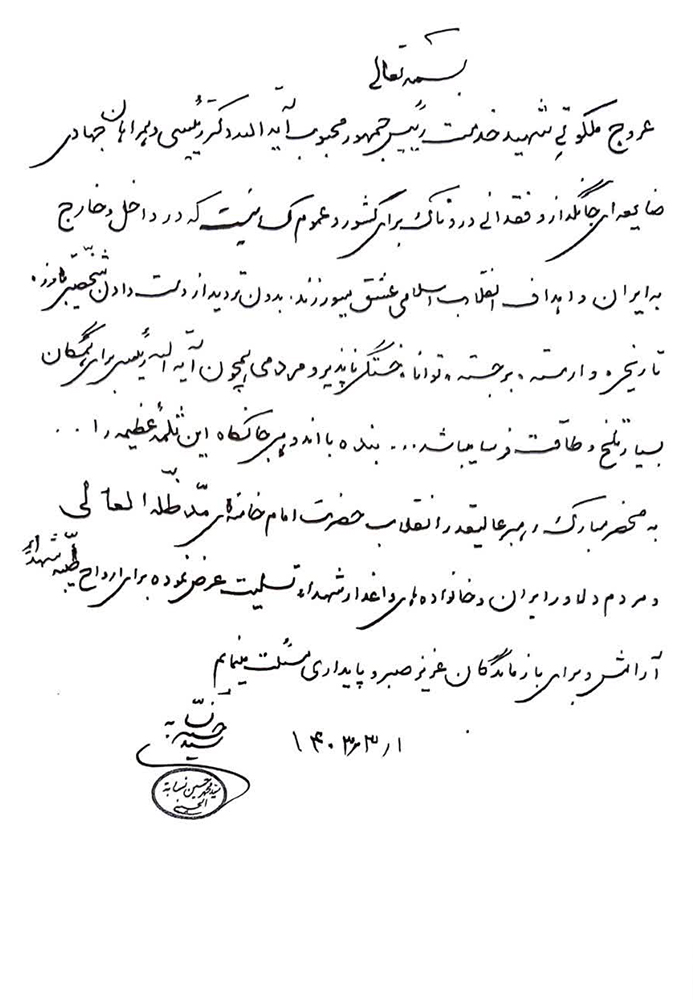 بسمه تعالی
عروج ملکوتی شهید خدمت رییس جمهور محبوب آیة الله دکتر رییسی و همراهان جهادی
ضایعه‌ای جانگداز و فقدانی دردناک برای کشور و عموم کسانیست که در داخل و خارج
به ایران و اهداف انقلاب اسلامی عشق میورزند. بدون تردید از دست دادن شخصیتی
تاریخی، وارسته، برجسته، توانا، خستگی‌ناپذیر و مردمی همچون آیة الله رییسی برای همگان
بسیار تلخ و طاقت فرسا میباشد... بنده با اندوهی جانکاه این ثلمهٔ عظیمه را ...
به محضر مبارک رهبر عالیقدر انقلاب حضرت امام خامنه‌ای مدّ ظلّه العالی
و مردم دلاور ایران و خانواده‌های داغدار شهداء تسلیت عرض نموده برای ارواح طیّبه شهداء
آرامش و برای بازماندگان عزیز صبر و پایداری مسئلت مینمایم
سید حسین نسّابه
۱ر۳ر۱۴۰۳
سید محمد حسین نسابة
الحسینی